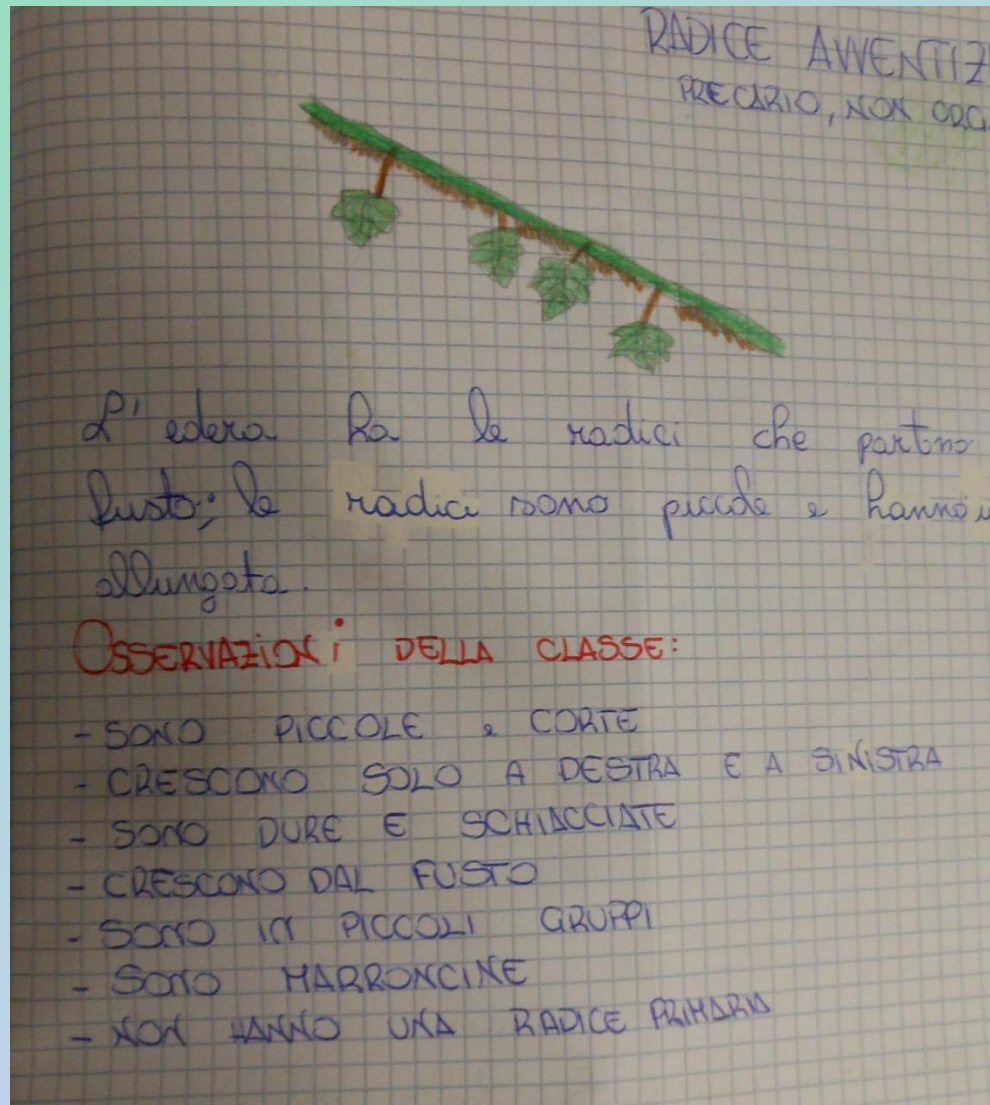 RADICE AVVENTIZ
PRECARIO, NON ORG
L'edera ha le radici che partono
fusto; le radici sono piccole e hanno u
allungata.
OSSERVAZIONI DELLA CLASSE:
- SONO PICCOLE e CORTE
- CRESCONO SOLO A DESTRA E A SINISTRA
- SONO DURE E SCHIACCIATE
- CRESCONO DAL FUSTO
- SONO IN PICCOLI GRUPPI
- SONO MARRONCINE
- NON HANNO UNA RADICE PRIMARIA